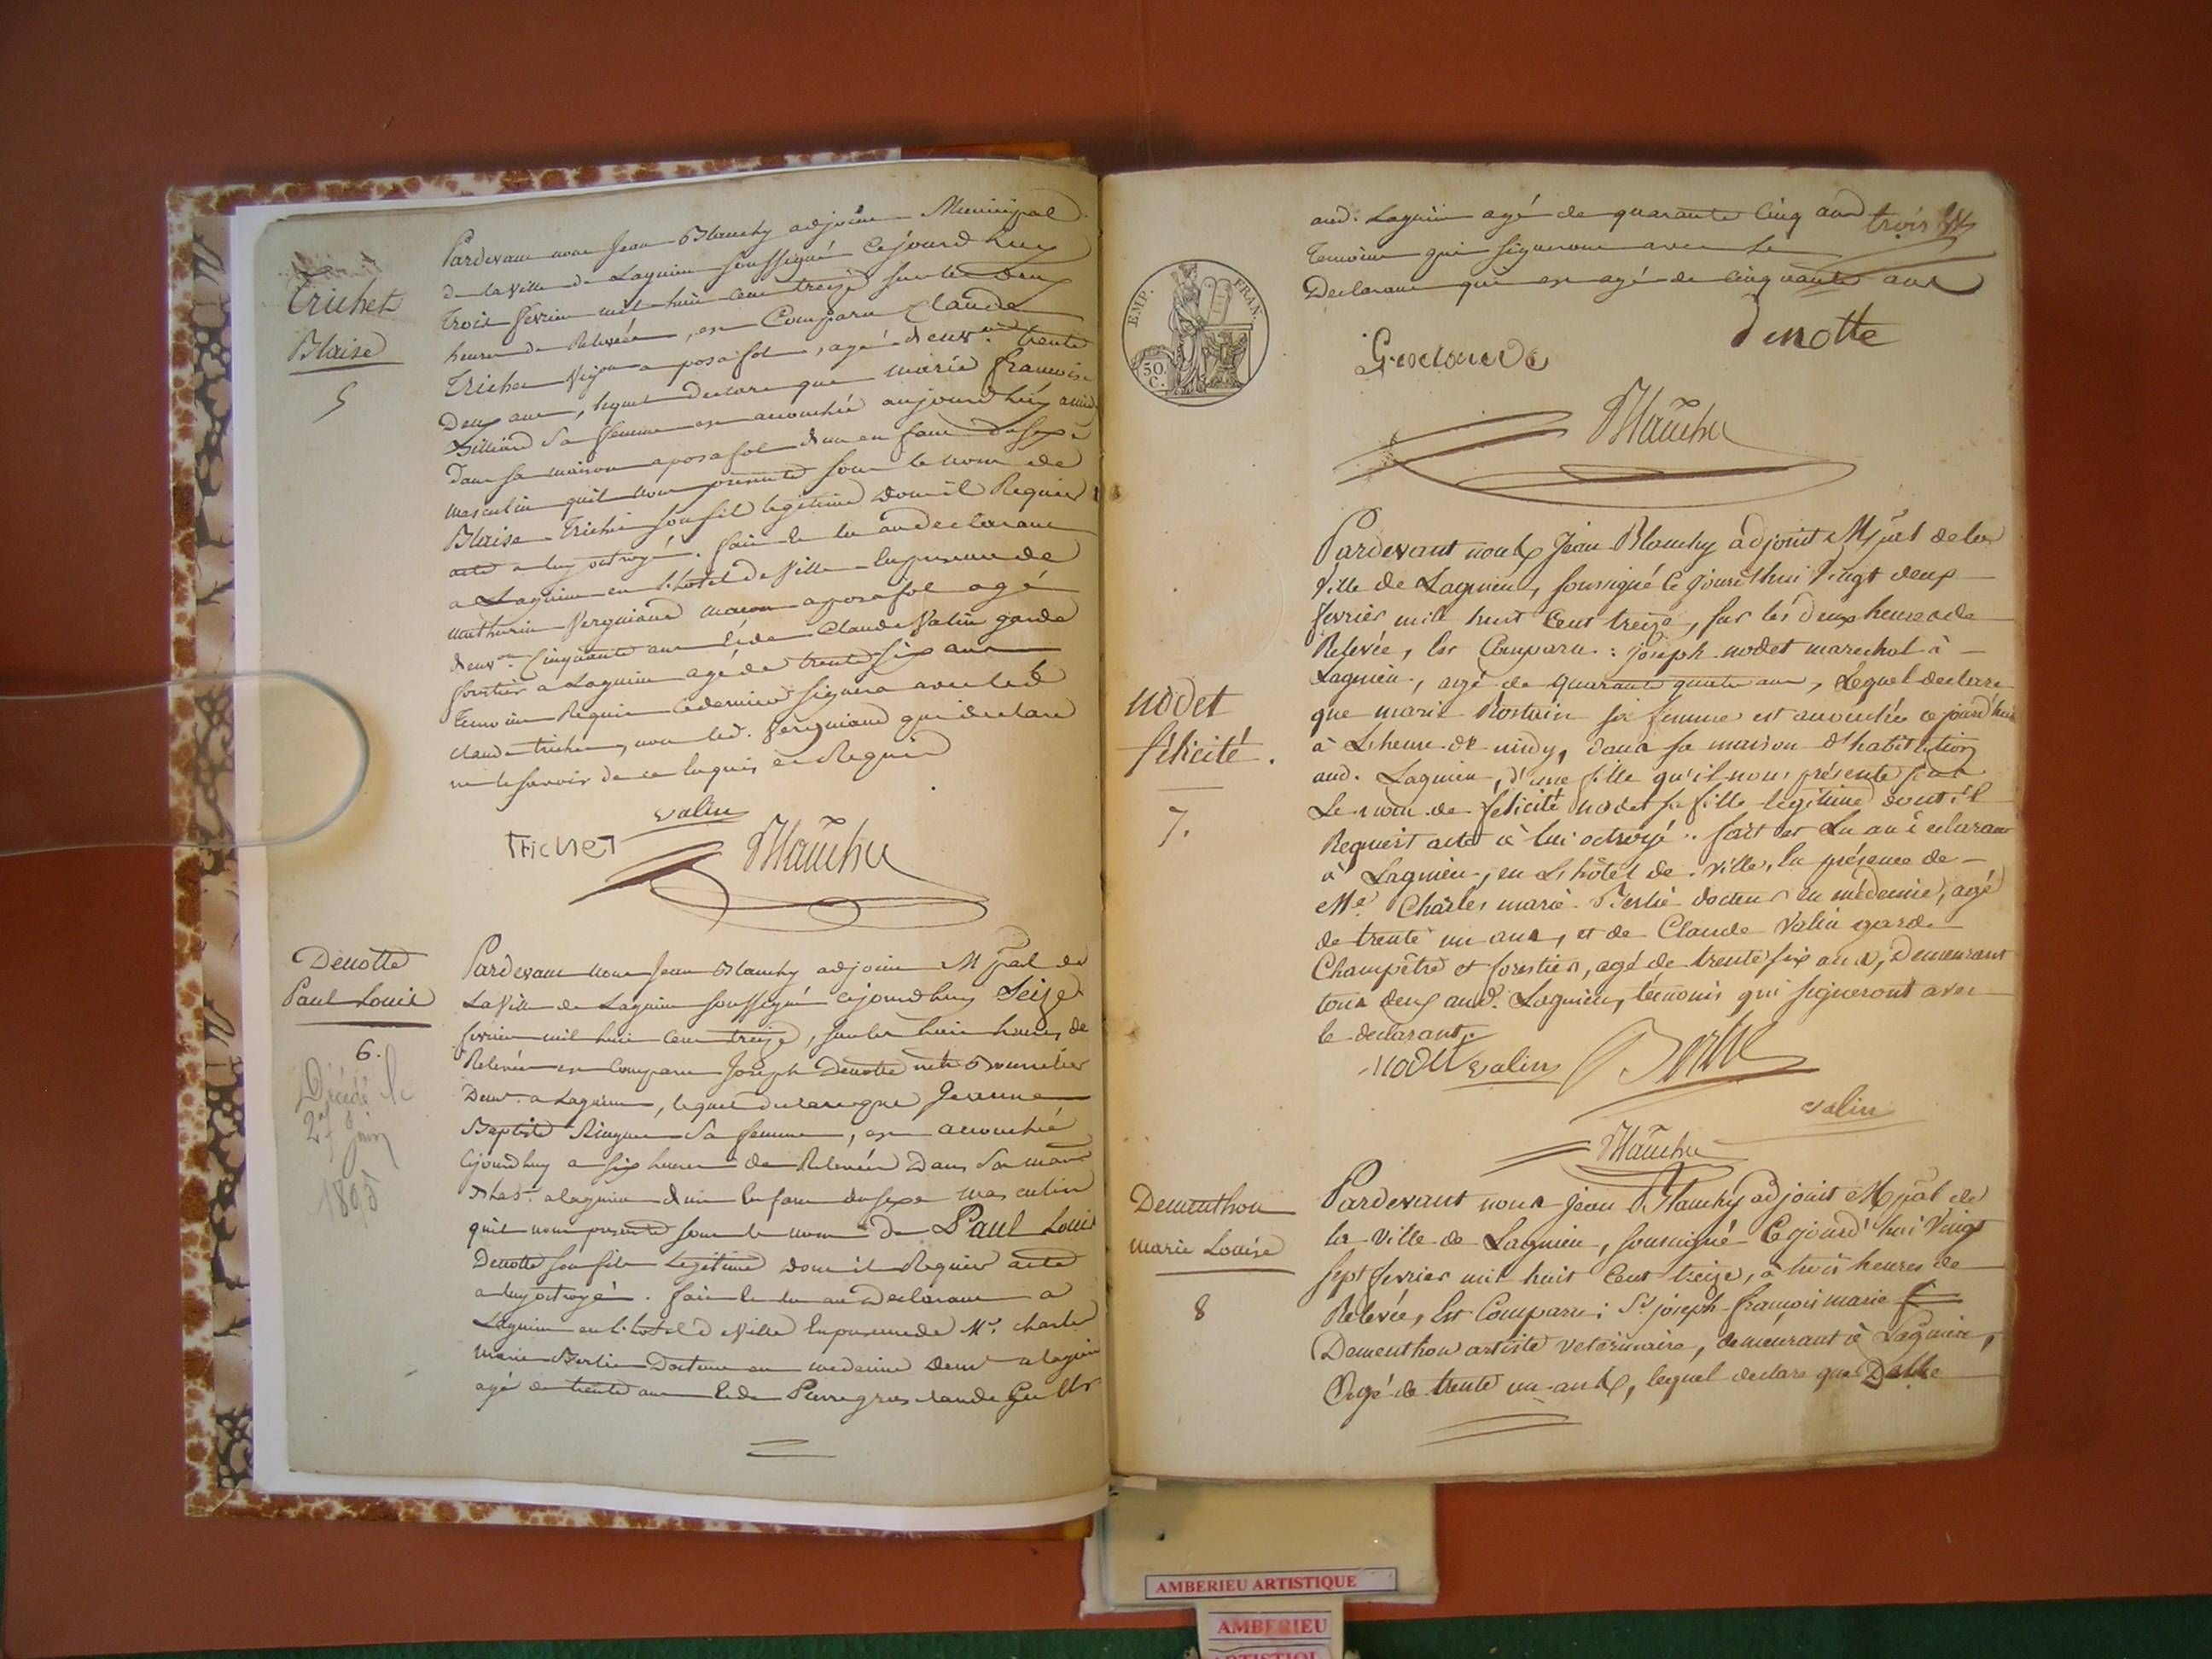 Trichet
Blaise
5
Pardevant nous Jean Blanchy adjoint Municipal
de la Ville de Lagnieu soussigné Cejourdhuy
trois fevrier mil huit cent treize sur les deux
heures de Relevée, est Comparu Claude
Trichet Vigon a posafol, agé d'env.on trente
Deux ans, lequel declare que marie francoise
Billiard Sa femme est accouchée aujourdhuy a midi
Dans sa maison a posafol d'un enfant du sexe
masculin quil nous presente sous le nom de
Blaise Trichet son fils legitime dont il Requiert
acte a luy octroyé. fait et lu au declarant
a Lagnieu en l'hotel de Ville en presence de
mathurin Verguiand macon a posafol agé
d'env.on Cinquante ans et de Claude Valin garde
forestier a Lagnieu agé de trente six ans
Temoins Requis le dernier signera avec led
claude trichet, non led. Verguiand qui declare
ne le savoir de ce Enquis et Requis
valin
TRICHET
Blanchy
Denotte
Paul Louis
6.
Décédé le
27 Juin
1895
Pardevant nous Jean Blanchy adjoint M.pal de
La Ville de Lagnieu soussigné cejourdhuy Seize
fevrier mil huit cent treize, sur les huit heures de
Relevée est Comparu Joseph Denotte
Dem.t a Lagnieu, lequel declare que Jeanne
Baptiste Sa femme, est accouchée
Cejourdhuy a six heures de Relevée Dans Sa maison
d'hab.on a lagnieu d'un Enfant du sexe masculin
quil nous presente sous le nom De Paul Louis
Denotte son fils Legitime dont il Requiert acte
a luy octroyé. fait et lu au Declarant a
Lagnieu en l'hotel de Ville En presence de M.r charles
Marie Berlie Docteur en medecine dem.t a lagnieu
agé de trente ans et de Pierre gros claude
aud. Lagnieu agé de quarante Cinq ans trois
Temoins qui signeront avec le
Declarant qui est agé de Cinquante ans
EMP. FRAN.
50. C.
Denotte
Grosclaude
Blanchy
nodet
félicité.
7.
Pardevant nous Jean Blanchy adjoint M.pal de la
Ville de Lagnieu, soussigné Cejourd'hui Vingt deux
fevrier mil huit Cent treize, sur les deux heures de
Relevée, Est Comparu : joseph nodet marechal à
Lagnieu, agé de quarante quatre ans, Lequel declare
que marie Rostain sa femme est accouchée cejourd'hui
à L'heure de midy, dans sa maison d'habitation
aud. Lagnieu, d'une fille qu'il nous présente sous
Le nom de félicité nodet sa fille legitime dont il
Requiert acte à lui octroyé. fait et Lu au declarant
à Lagnieu, en L'hôtel de Ville, En présence de
M.e Charles marie Berlié docteur en médecine, agé
de trente un ans, et de Claude Valin garde
Champêtre et forestier, agé de trente six ans, Demeurant
tous deux aud. Lagnieu, temoins qui signeront avec
le declarant.
nodet valin Berlie
valin
Blanchy
Dementhon
marie Louise
8
Pardevant nous Jean Blanchy adjoint M.pal de
la Ville de Lagnieu, soussigné Cejourd'hui Vingt
sept fevrier mil huit Cent treize, à trois heures de
Relevée, Est Comparu : S.r joseph françois marie
Dementhon artiste veterinaire, demeurant à Lagnieu,
Agé de trente un ans, lequel declare que Delle
AMBERIEU ARTISTIQUE
AMBERIEU